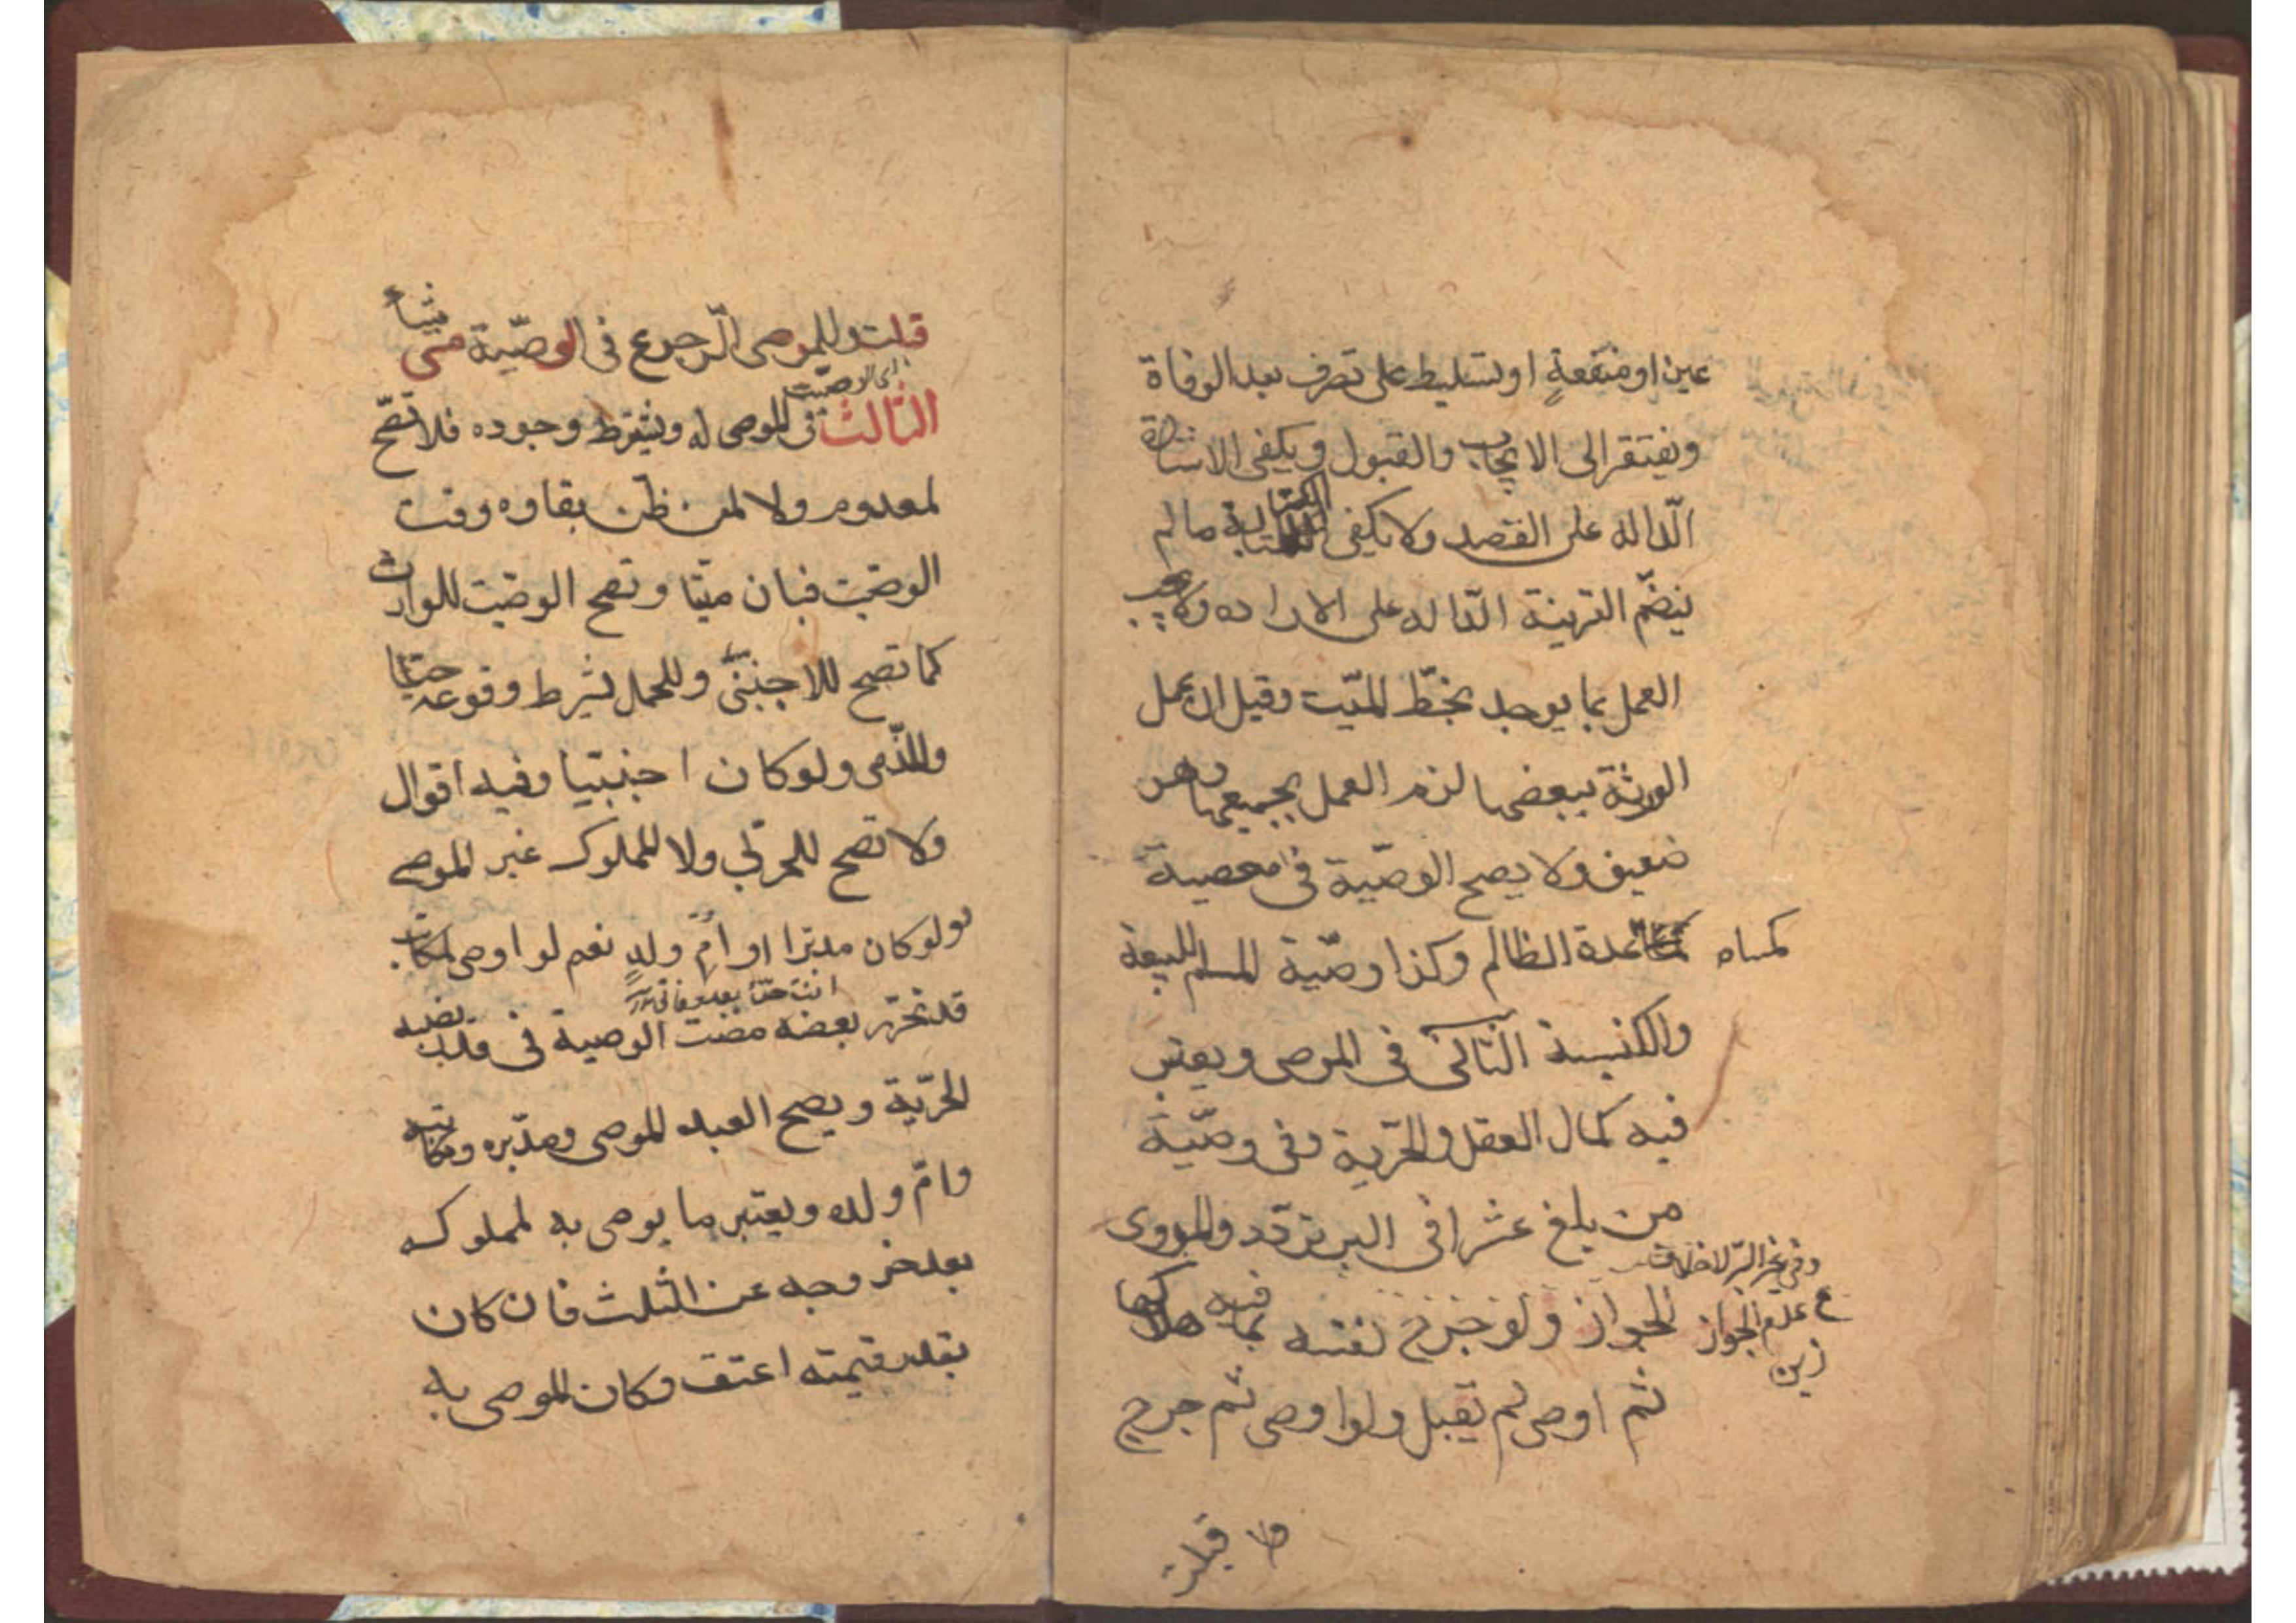 عين او منفعةٍ او تسليط على تصرف بعد الوفاة
ويفتقر الى الايجاب والقبول ويكفى الاشارة
الدّاله على القصد ولا يكفى الكتابة ما لم
ينضمّ القرينة الدّاله على الاراده ولا يجب
العمل بما يوجد بخطّ الميّت وقيل ان عمل
الورثة ببعضها لزم العمل بجميعها وهو
ضعيف ولا يصح الوصّية فى معصية
كمساعدة الظالم وكذا وصّية المسلم للبيعة
كمساه
والكنيسة الثانى فى الموصى ويعتبر
فيه كمال العقل والحرّية وفى وصّية
من بلغ عشرا فى البر تردّد والمروى
وفى غير البرّ لا خلاف
الجواز ولو جرح نفسه بما فيه هلاكها
ع عدم الجواز
زين
ثم اوصى لم تقبل ولو اوصى ثم جرح
قبلت
قلت وللموصى الرّجوع فى الوصّية متى شاء
الثالث فى الموصى له ويشترط وجوده فلا تصّح
لمعدوم ولا لمن ظنّ بقاوه وقت
الوصّيت فبان ميّتا وتصح الوصّيت للوارث
كما تصح للاجنبىّ وللحمل بشرط وقوعه حيّا
وللذّمى ولو كان اجنبيا وفيه اقوال
ولا تصح للحربّى ولا للمملوك غير الموصى
ولو كان مدبّرا او امّ ولدٍ نعم لو اوصى لمكاتب
انت حرّ بعد وفاتى
قد تحرّر بعضه مضت الوصية فى قدر نصيبه
الحرّية ويصح العبد الموصى ومدبّره ومكاتبه
وامّ ولده ويعتبر ما يوصى به لمملوكه
بعد خروجه عن الثلث فان كان
بقدر قيمته اعتق وكان الموصى به